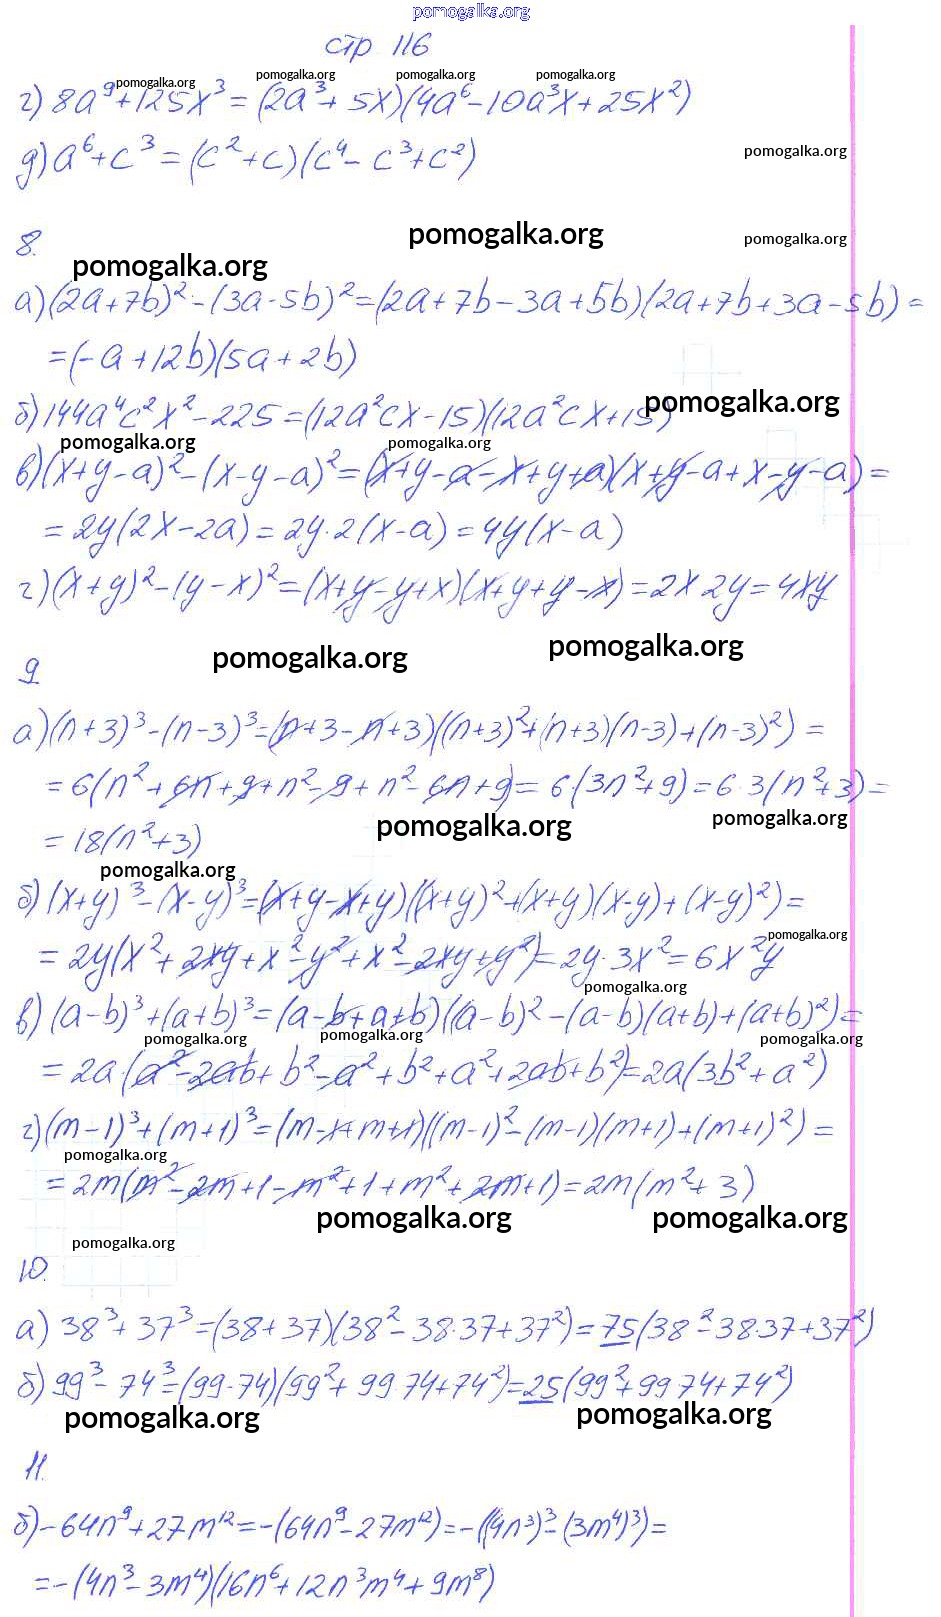 pomogalka.org
стр 116
pomogalka.org pomogalka.org pomogalka.org pomogalka.org
г) 8a⁹+125x³=(2a³+5x)(4a⁶-10a³x+25x²)
д) a⁶+c³=(c²+c)(c⁴-c³+c²)
pomogalka.org
8.
pomogalka.org pomogalka.org
pomogalka.org
а) (2a+7b)²-(3a-5b)²=(2a+7b-3a+5b)(2a+7b+3a-5b)=
=(-a+12b)(5a+2b)
б) 144a⁴c²x²-225=(12a²cx-15)(12a²cx+15)
pomogalka.org
pomogalka.org pomogalka.org
в) (x+y-a)²-(x-y-a)²=(x+y-a-x+y+a)(x+y-a+x-y-a)=
=2y(2x-2a)=2y·2(x-a)=4y(x-a)
г) (x+y)²-(y-x)²=(x+y-y+x)(x+y+y-x)=2x·2y=4xy
pomogalka.org pomogalka.org
9
а) (n+3)³-(n-3)³=(n+3-n+3)((n+3)²+(n+3)(n-3)+(n-3)²)=
=6(n²+6n+9+n²-9+n²-6n+9)=6(3n²+9)=6·3(n²+3)=
=18(n²+3)
pomogalka.org pomogalka.org
pomogalka.org
б) (x+y)³-(x-y)³=(x+y-x+y)((x+y)²+(x+y)(x-y)+(x-y)²)=
pomogalka.org
=2y(x²+2xy+x²-y²+x²-2xy+y²)=2y·3x²=6x²y
pomogalka.org
в) (a-b)³+(a+b)³=(a-b+a+b)((a-b)²-(a-b)(a+b)+(a+b)²)=
pomogalka.org pomogalka.org pomogalka.org
=2a·(a²-2ab+b²-a²+b²+a²+2ab+b²)=2a(3b²+a²)
г) (m-1)³+(m+1)³=(m-1+m+1)((m-1)²-(m-1)(m+1)+(m+1)²)=
pomogalka.org
=2m(m²-2m+1-m²+1+m²+2m+1)=2m(m²+3)
pomogalka.org pomogalka.org
pomogalka.org
10.
а) 38³+37³=(38+37)(38²-38·37+37²)=75(38²-38·37+37²)
б) 99³-74³=(99-74)(99²+99·74+74²)=25(99²+99·74+74²)
pomogalka.org pomogalka.org
11.
б) -64n⁹+27m¹²=-(64n⁹-27m¹²)=-((4n³)³-(3m⁴)³)=
=-(4n³-3m⁴)(16n⁶+12n³m⁴+9m⁸)